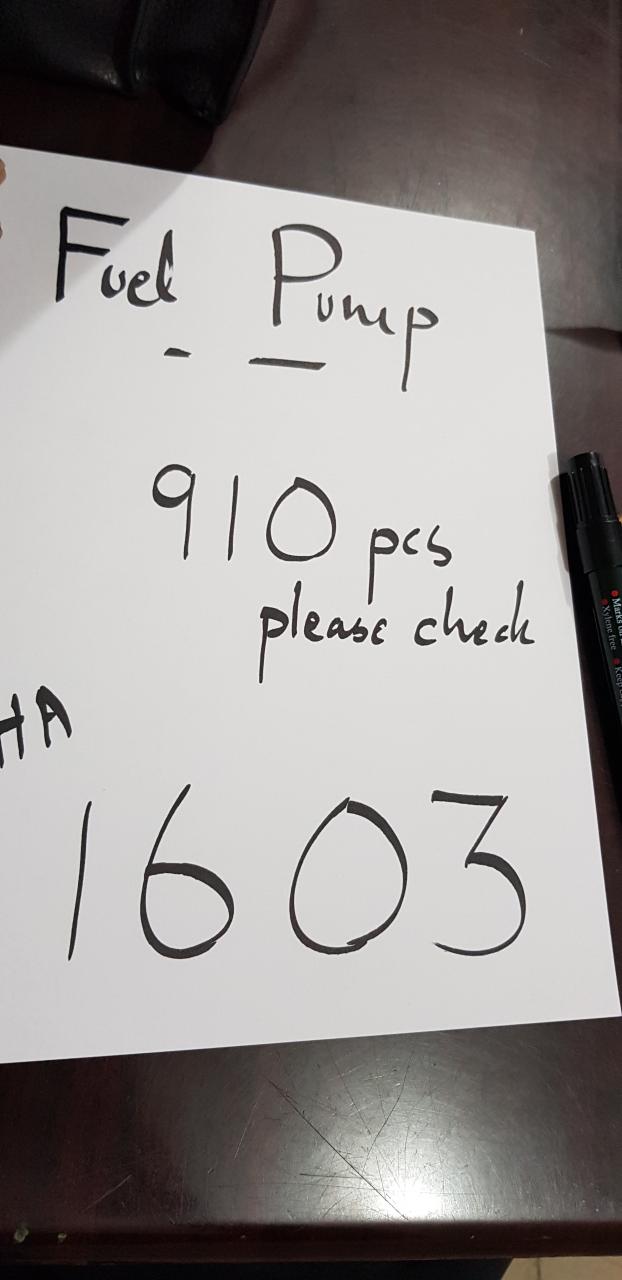 Fuel Pump
910 pcs
please check
HA
1603
Marks on
Xylene free